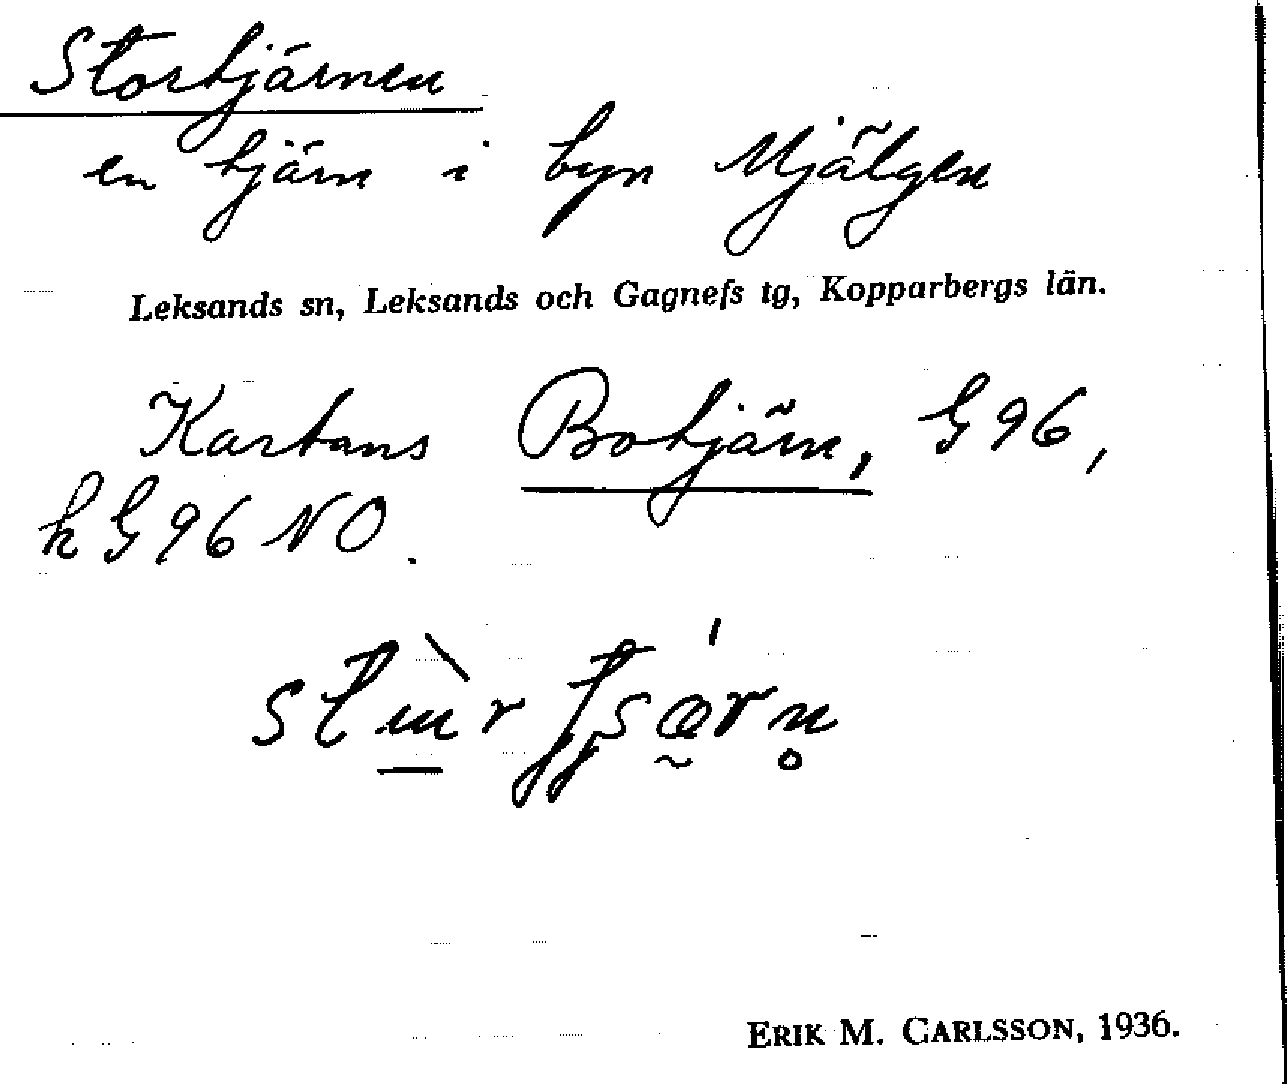 Stortjärnen
en tjärn i byn Mjälgen
Leksands sn, Leksands och Gagnefs tg, Kopparbergs län.
Kartans Botjärn, G 96,
h G 96 NO.
ERIK M. CARLSSON, 1936.